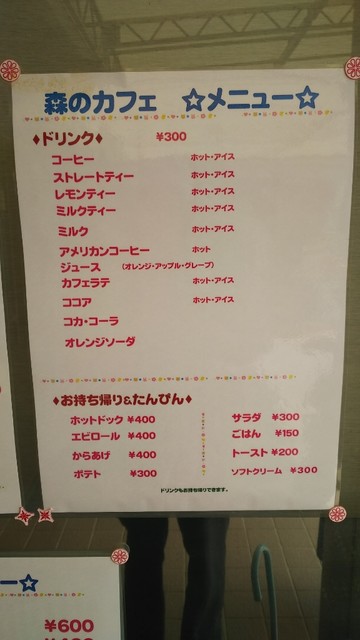 森のカフェ ☆メニュー☆
♦ドリンク♦ ¥300
コーヒー ホット・アイス
ストレートティー ホット・アイス
レモンティー ホット・アイス
ミルクティー ホット・アイス
ミルク ホット・アイス
アメリカンコーヒー ホット
ジュース (オレンジ・アップル・グレープ)
カフェラテ ホット・アイス
ココア ホット・アイス
コカ・コーラ
オレンジソーダ
♦お持ち帰り&たんぴん♦
ホットドック ¥400
エビロール ¥400
からあげ ¥400
ポテト ¥300
サラダ ¥300
ごはん ¥150
トースト ¥200
ソフトクリーム ¥300
ドリンクもお持ち帰りできます。
ー☆
¥600